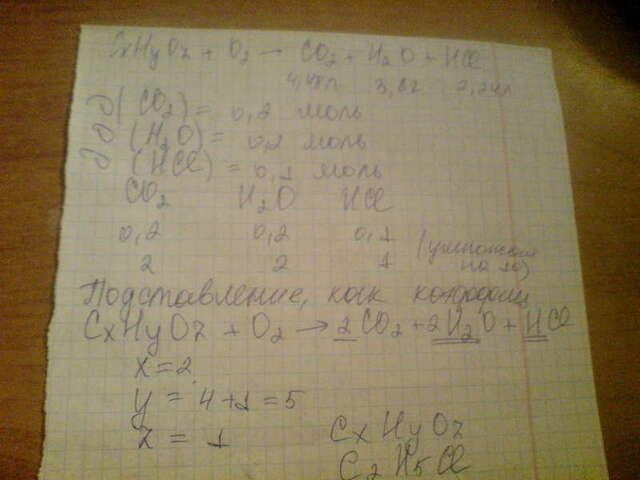 CxHyOz + O2 — CO2 + H2O + HCl
4,48л 3,6г 2,24л
∂(CO2) = 0,2 моль
∂(H2O) = 0,2 моль
∂(HCl) = 0,1 моль
CO2 H2O HCl
0,2 0,2 0,1 (умножаем
2 2 1 на 10)
Подставление, как
CxHyOz + O2 → 2CO2 + 2H2O + HCl
x = 2
y = 4+1 = 5
z = 1
CxHyOz
C2H5Cl